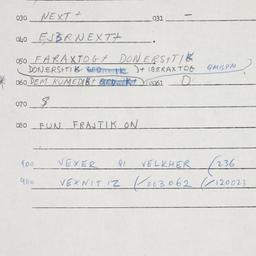 030 NEXT + 031 –
040 EJBRNEXT+ .
050 FARAXTOG+ DONERSITIK
DONERSITIK )+ IBERAXTOG GMISPM
060 DEM KUMEDIK+ 061 D
070 8
080 FUN FRAJTIK ON
400 VEXER 91 VELKHER (/236
400 VEXNIT IZ (/003062 (/120023